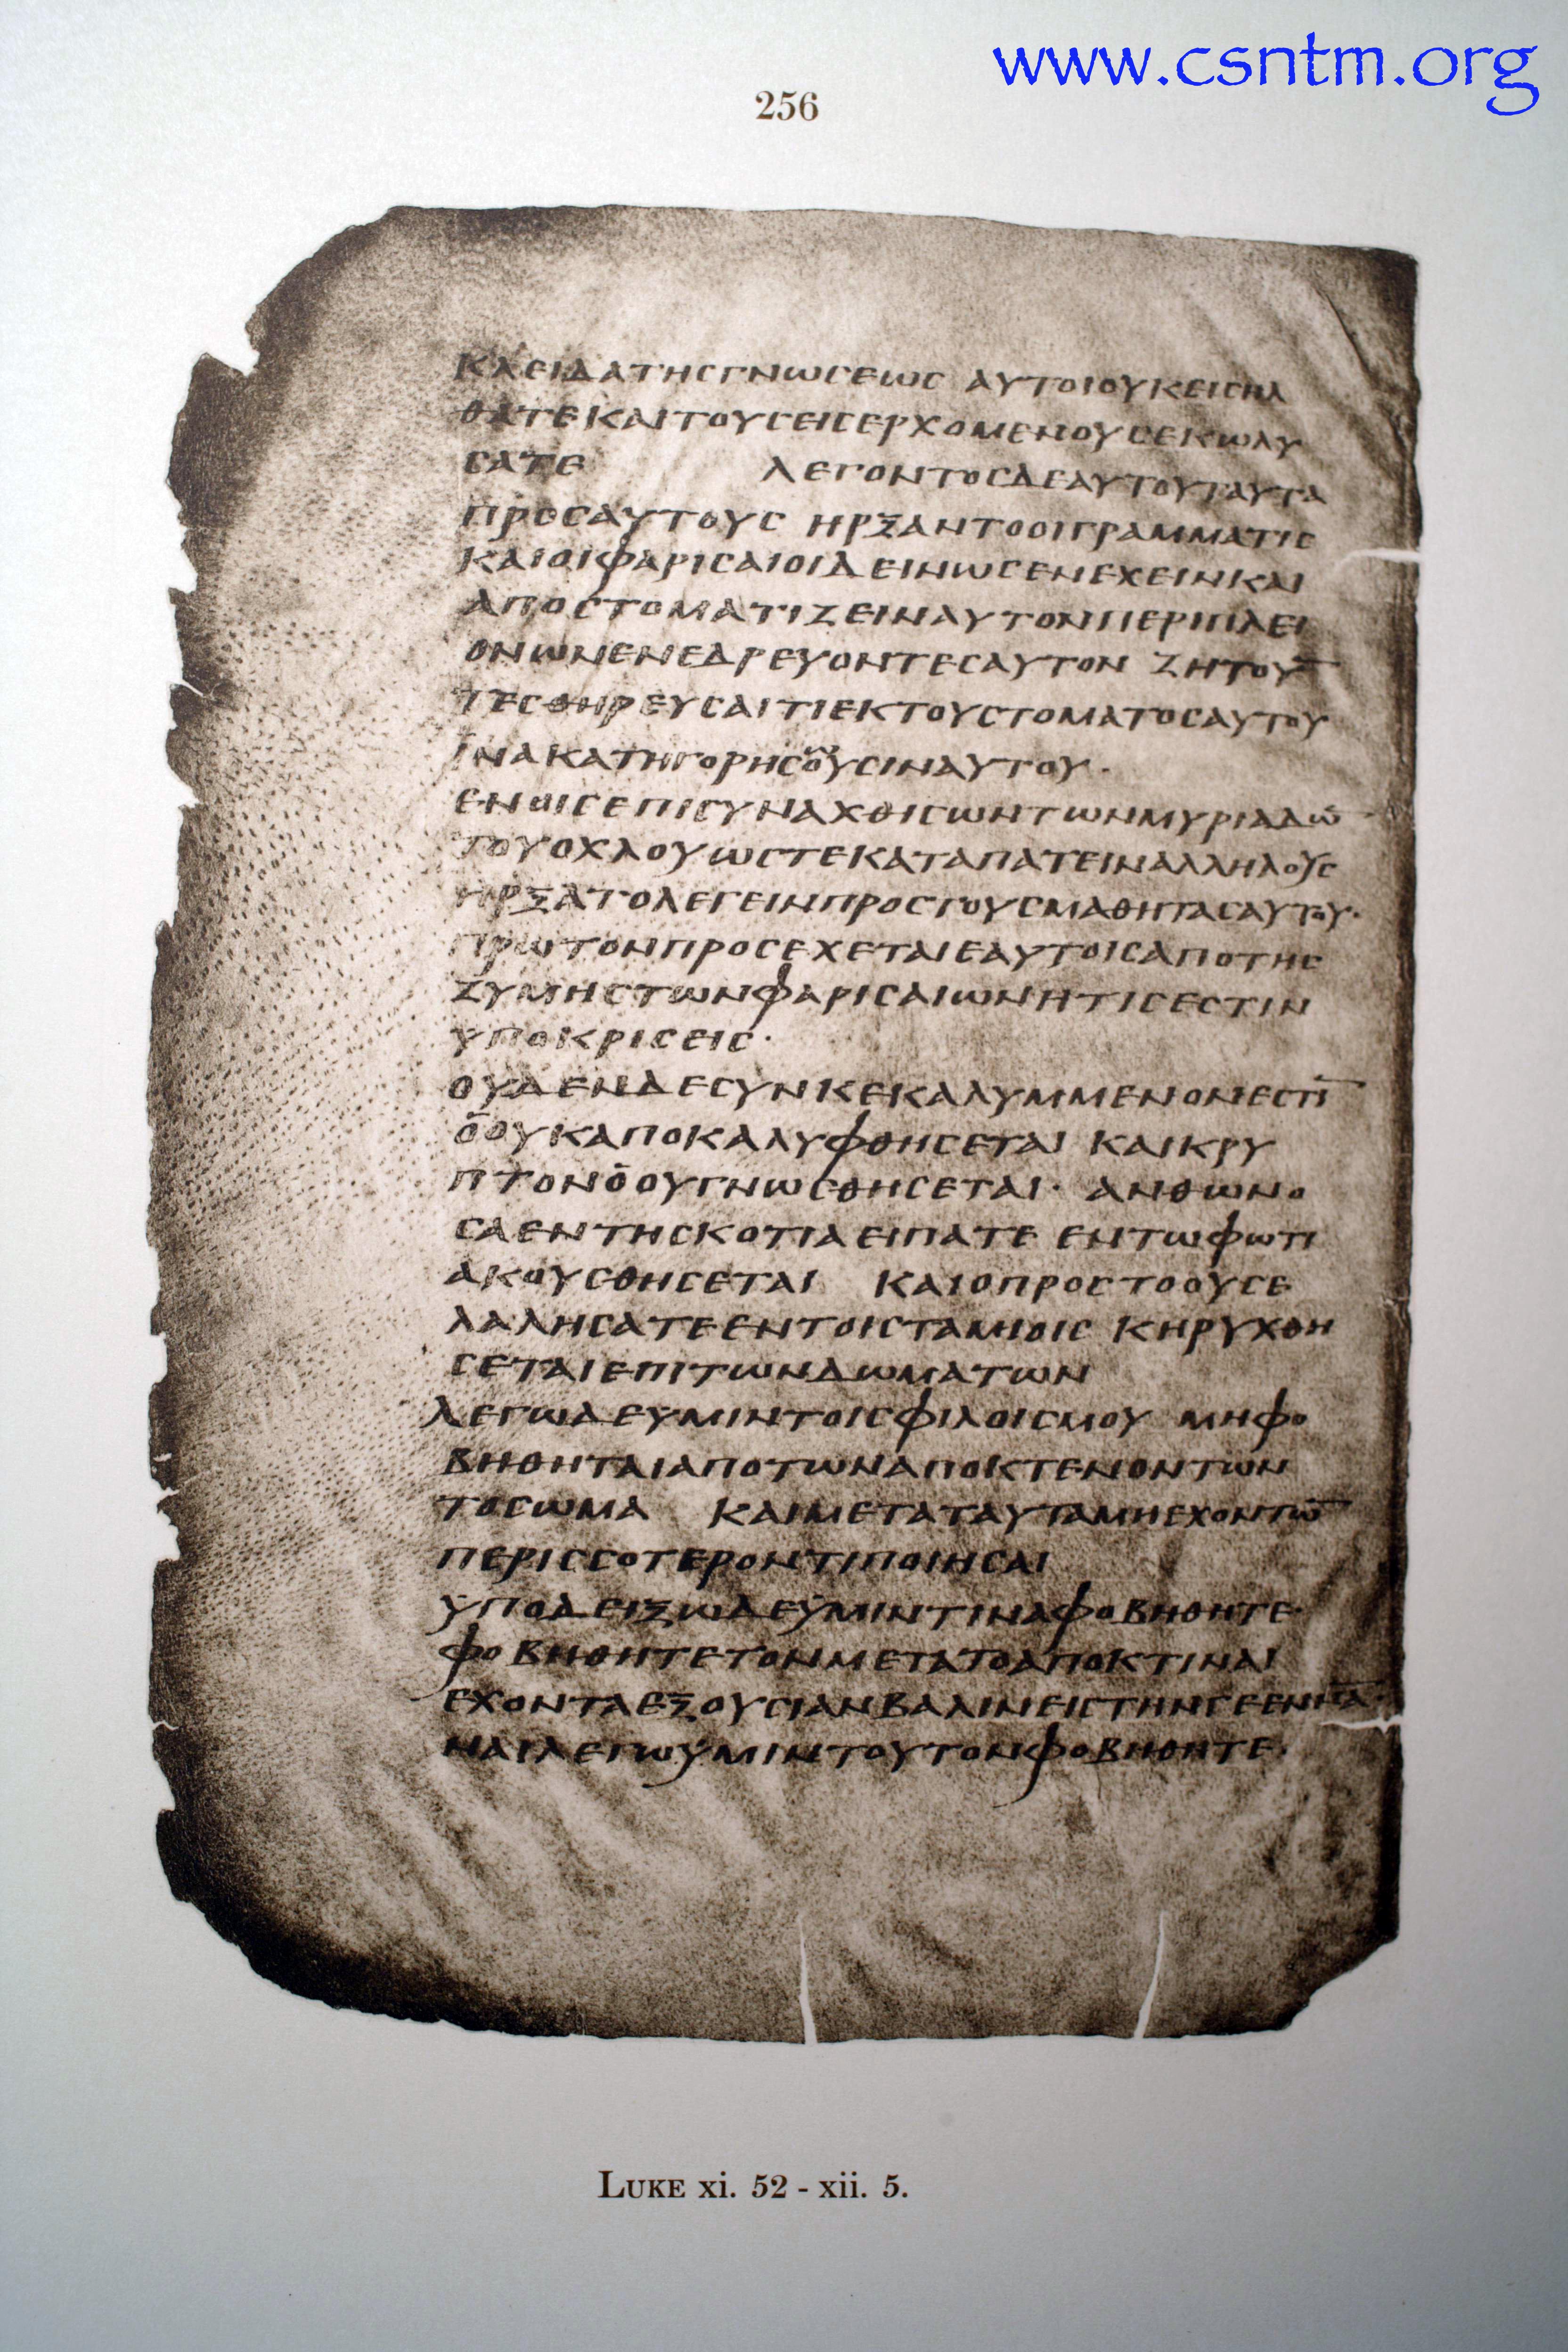 www.csntm.org
256
ΚΛΕΙΔΑΤΗϹΓΝΩϹΕΩϹ ΑΥΤΟΙΟΥΚΕΙϹΗΛ
ΘΑΤΕΚΑΙΤΟΥϹΕΙϹΕΡΧΟΜΕΝΟΥϹΕΚΩΛΥ
ϹΑΤΕ ΛΕΓΟΝΤΟϹΔΕΑΥΤΟΥΤΑΥΤΑ
ΠΡΟϹΑΥΤΟΥϹ ΗΡΞΑΝΤΟΟΙΓΡΑΜΜΑΤΙϹ
ΚΑΙΟΙΦΑΡΙϹΑΙΟΙΔΕΙΝΩϹΕΝΕΧΕΙΝΚΑΙ
ΑΠΟϹΤΟΜΑΤΙΖΕΙΝΑΥΤΟΝΠΕΡΙΠΛΕΙ
ΟΝΩΝΕΝΕΔΡΕΥΟΝΤΕϹΑΥΤΟΝ ΖΗΤΟΥ̅
ΤΕϹΘΗΡΕΥϹΑΙΤΙΕΚΤΟΥϹΤΟΜΑΤΟϹΑΥΤΟΥ
ΪΝΑΚΑΤΗΓΟΡΗϹΟΥϹΙΝΑΥΤΟΥ·
ΕΝΟΙϹΕΠΙϹΥΝΑΧΘΙϹΩΝΤΩΝΜΥΡΙΑΔΩ̅
ΤΟΥΟΧΛΟΥΩϹΤΕΚΑΤΑΠΑΤΕΙΝΑΛΛΗΛΟΥϹ
ΗΡΞΑΤΟΛΕΓΕΙΝΠΡΟϹΤΟΥϹΜΑΘΗΤΑϹΑΥΤΟΥ·
ΠΡΩΤΟΝΠΡΟϹΕΧΕΤΑΙΕΑΥΤΟΙϹΑΠΟΤΗϹ
ΖΥΜΗϹΤΩΝΦΑΡΙϹΑΙΩΝΗΤΙϹΕϹΤΙΝ
ΥΠΟΚΡΙϹΕΙϹ·
ΟΥΔΕΝΔΕϹΥΝΚΕΚΑΛΥΜΜΕΝΟΝΕϹΤΙ̅
ΟΟΥΚΑΠΟΚΑΛΥΦΘΗϹΕΤΑΙ ΚΑΙΚΡΥ
ΠΤΟΝΟΟΥΓΝΩϹΘΗϹΕΤΑΙ· ΑΝΘΩΝΟ
ϹΑΕΝΤΗϹΚΟΤΙΑΕΙΠΑΤΕ ΕΝΤΩΦΩΤΙ
ΑΚΟΥϹΘΗϹΕΤΑΙ ΚΑΙΟΠΡΟϹΤΟΟΥϹΕ
ΛΑΛΗϹΑΤΕΕΝΤΟΙϹΤΑΜΙΟΙϹ ΚΗΡΥΧΘΗ
ϹΕΤΑΙΕΠΙΤΩΝΔΩΜΑΤΩΝ
ΛΕΓΩΔΕΥΜΙΝΤΟΙϹΦΙΛΟΙϹΜΟΥ ΜΗΦΟ
ΒΗΘΗΤΑΙΑΠΟΤΩΝΑΠΟΚΤΕΝΟΝΤΩΝ
ΤΟϹΩΜΑ ΚΑΙΜΕΤΑΤΑΥΤΑΜΗΕΧΟΝΤΩ̅
ΠΕΡΙϹϹΟΤΕΡΟΝΤΙΠΟΙΗϹΑΙ
ΥΠΟΔΕΙΞΩΔΕΫΜΙΝΤΙΝΑΦΟΒΗΘΗΤΕ·
ΦΟΒΗΘΗΤΕΤΟΝΜΕΤΑΤΟΑΠΟΚΤΙΝΑΙ
ΕΧΟΝΤΑΕΞΟΥϹΙΑΝΒΑΛΙΝΕΙϹΤΗΝΓΕΕΝΝΑ̅·
ΝΑΙΛΕΓΩΫΜΙΝΤΟΥΤΟΝΦΟΒΗΘΗΤΕ·
LUKE xi. 52 - xii. 5.